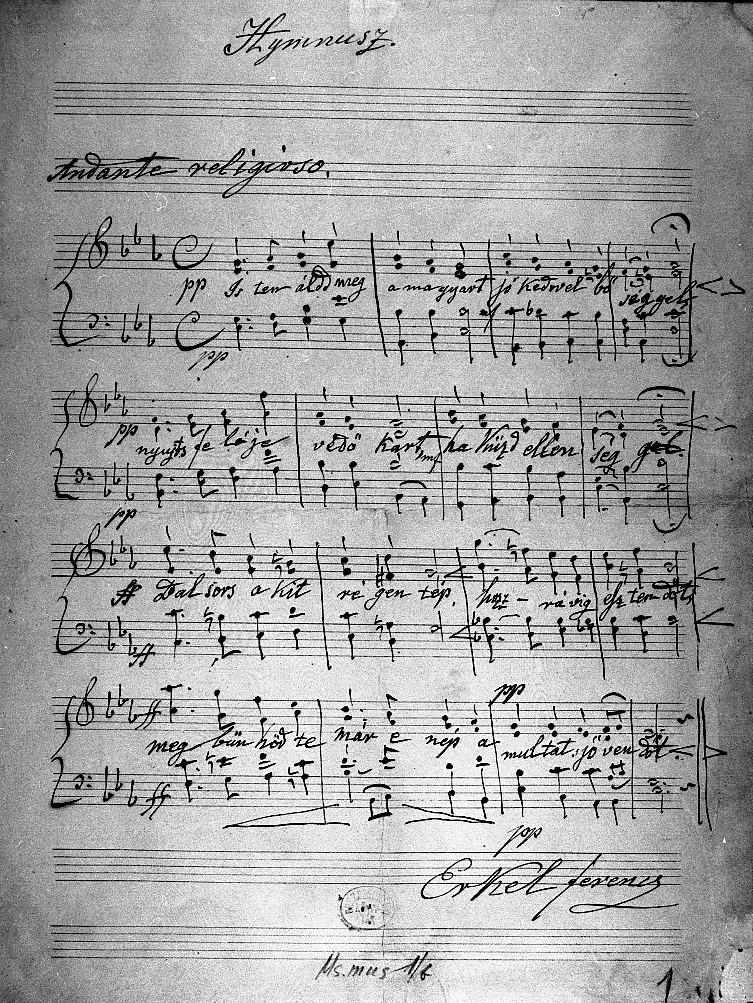 Hymnusz.
Andante religioso.
pp Is ten áldd meg a magyart jó kedvel bő séggel
pp
pp nyujts fe léje védő kart, mf ha küzd ellen ség gel.
pp
ff Bal sors a kit ré gen tép, hoz - rá víg esz ten dőt,
ff
pp
ff meg bün hőd te már e nép a multat, jö ven dőt
ff
pp
Erkel ferencz
Ms. mus 1/b
1